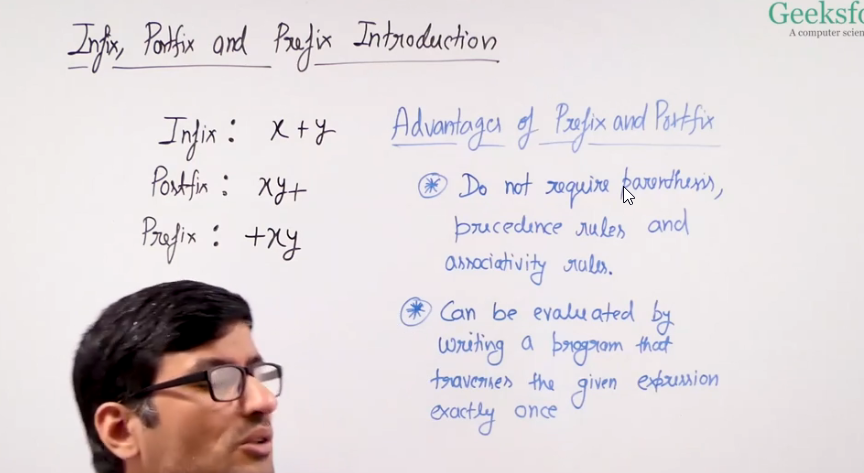 Geeksfo
A computer scien
Infix, Postfix and Prefix Introduction
Infix : x + y
Postfix : xy+
Prefix : +xy
Advantages of Prefix and Postfix
Do not require parenthesis,
precedence rules and
associativity rules.
Can be evaluated by
writing a program that
traverses the given expression
exactly once